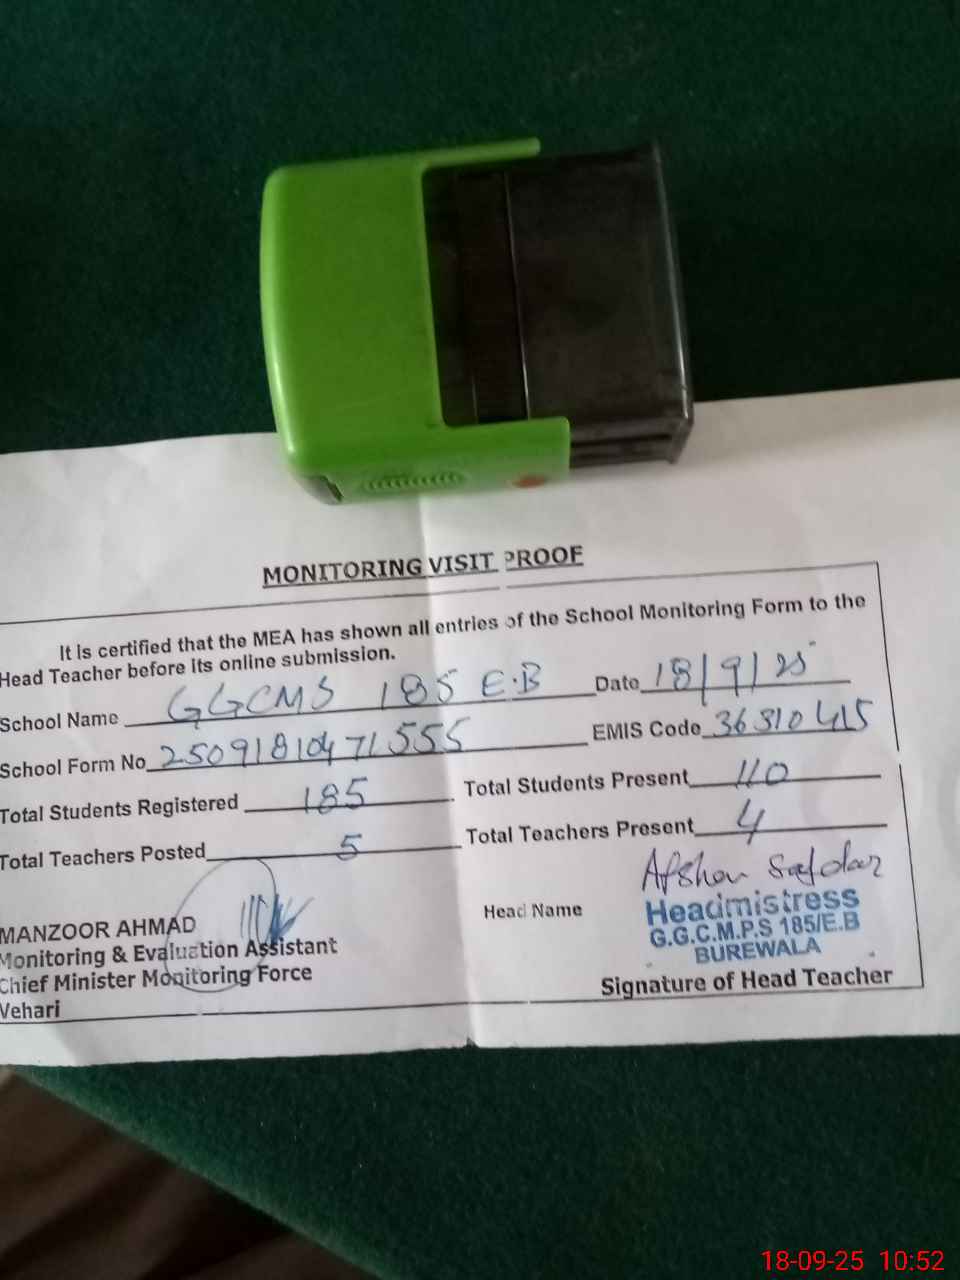 MONITORING VISIT PROOF
It is certified that the MEA has shown all entries of the School Monitoring Form to the
Head Teacher before its online submission.
School Name GGCMS 185 E.B Date 18/9/25
School Form No 2509181047 1555 EMIS Code 36310415
Total Students Registered 185 Total Students Present 110
Total Teachers Posted 5 Total Teachers Present 4
Afshan Safdar
MANZOOR AHMAD Head Name Headmistress
Monitoring & Evaluation Assistant G.G.C.M.P.S 185/E.B
Chief Minister Monitoring Force BUREWALA
Vehari Signature of Head Teacher
18-09-25 10:52